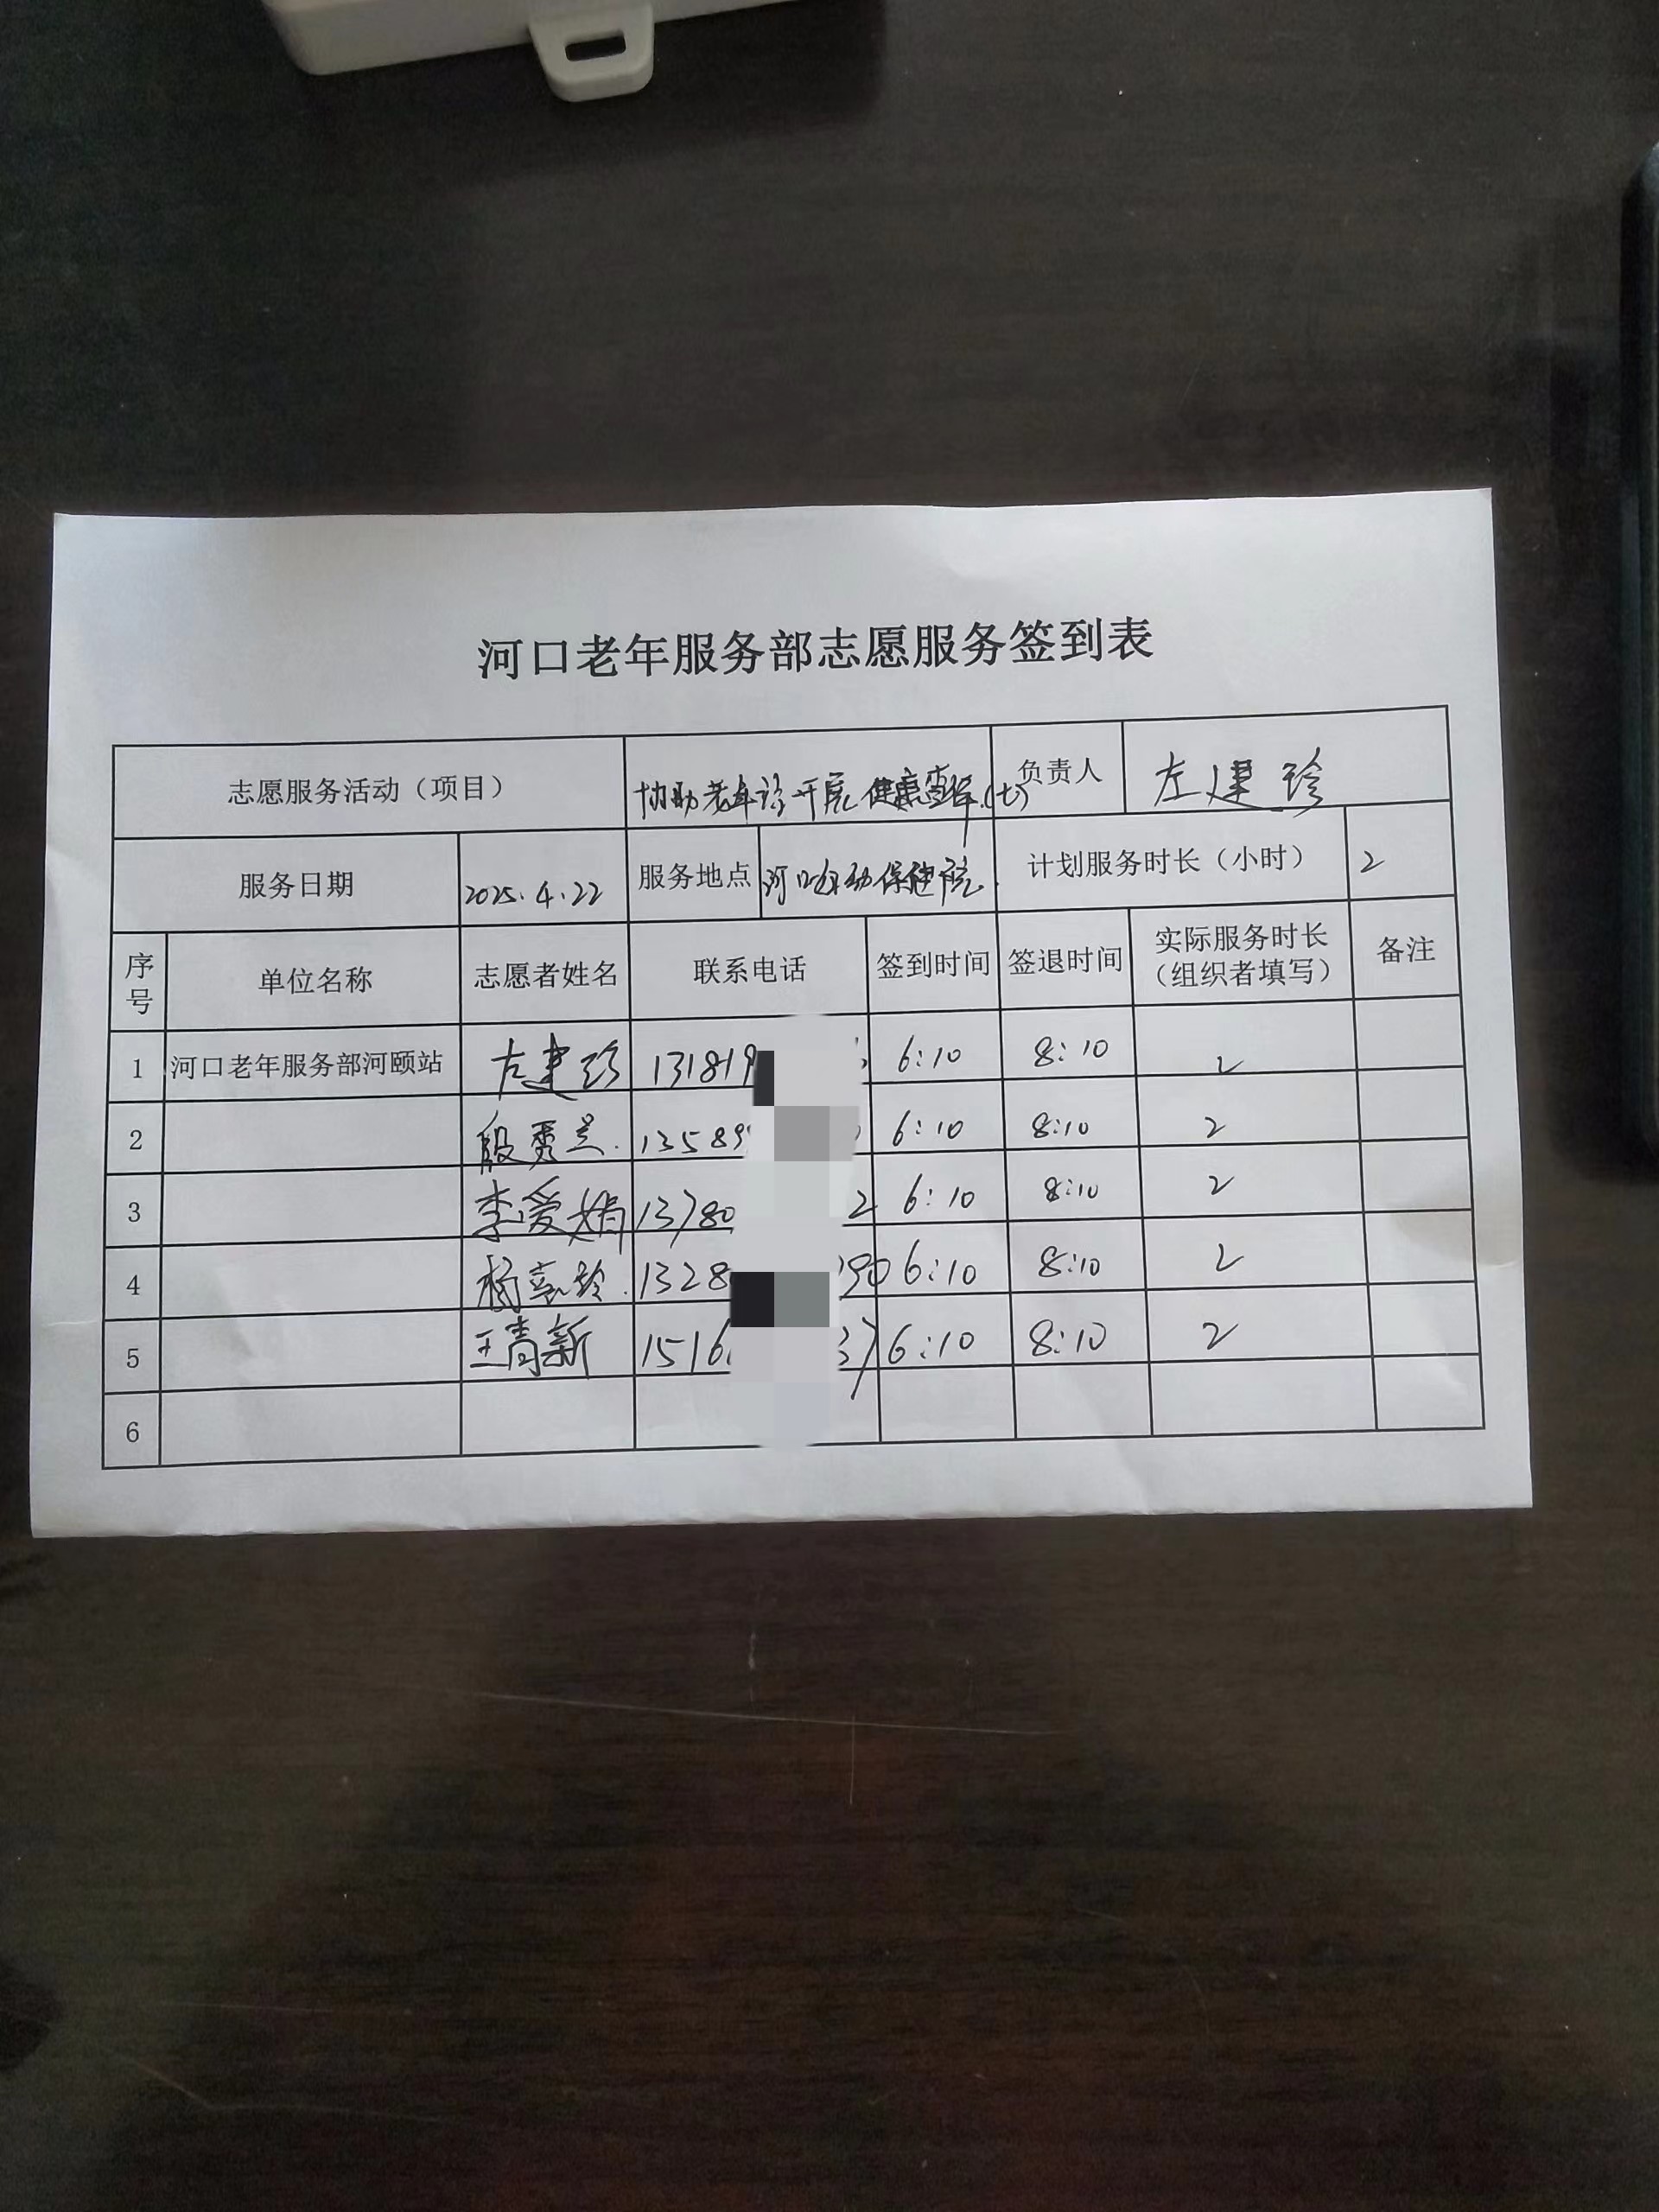 河口老年服务部志愿服务签到表
志愿服务活动（项目） 协助老年 开展健康 (七) 负责人 左建珍
服务日期 2025.4.22 服务地点 河口 保健院 计划服务时长（小时） 2
序号 单位名称 志愿者姓名 联系电话 签到时间 签退时间 实际服务时长（组织者填写） 备注
1 河口老年服务部河颐站 左建珍 131819 6:10 8:10 2
2 段秀兰 13589 6:10 8:10 2
3 李爱娟 13780 2 6:10 8:10 2
4 杨 玲 1328 90 6:10 8:10 2
5 王青新 1516 37 6:10 8:10 2
6